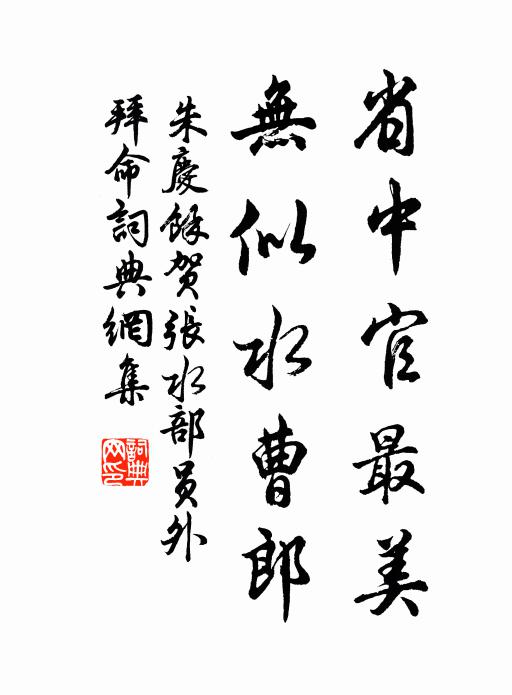 省中官最美
無似水曹郎
朱慶餘賀張水部員外
拜命詞典網集
詞典網印